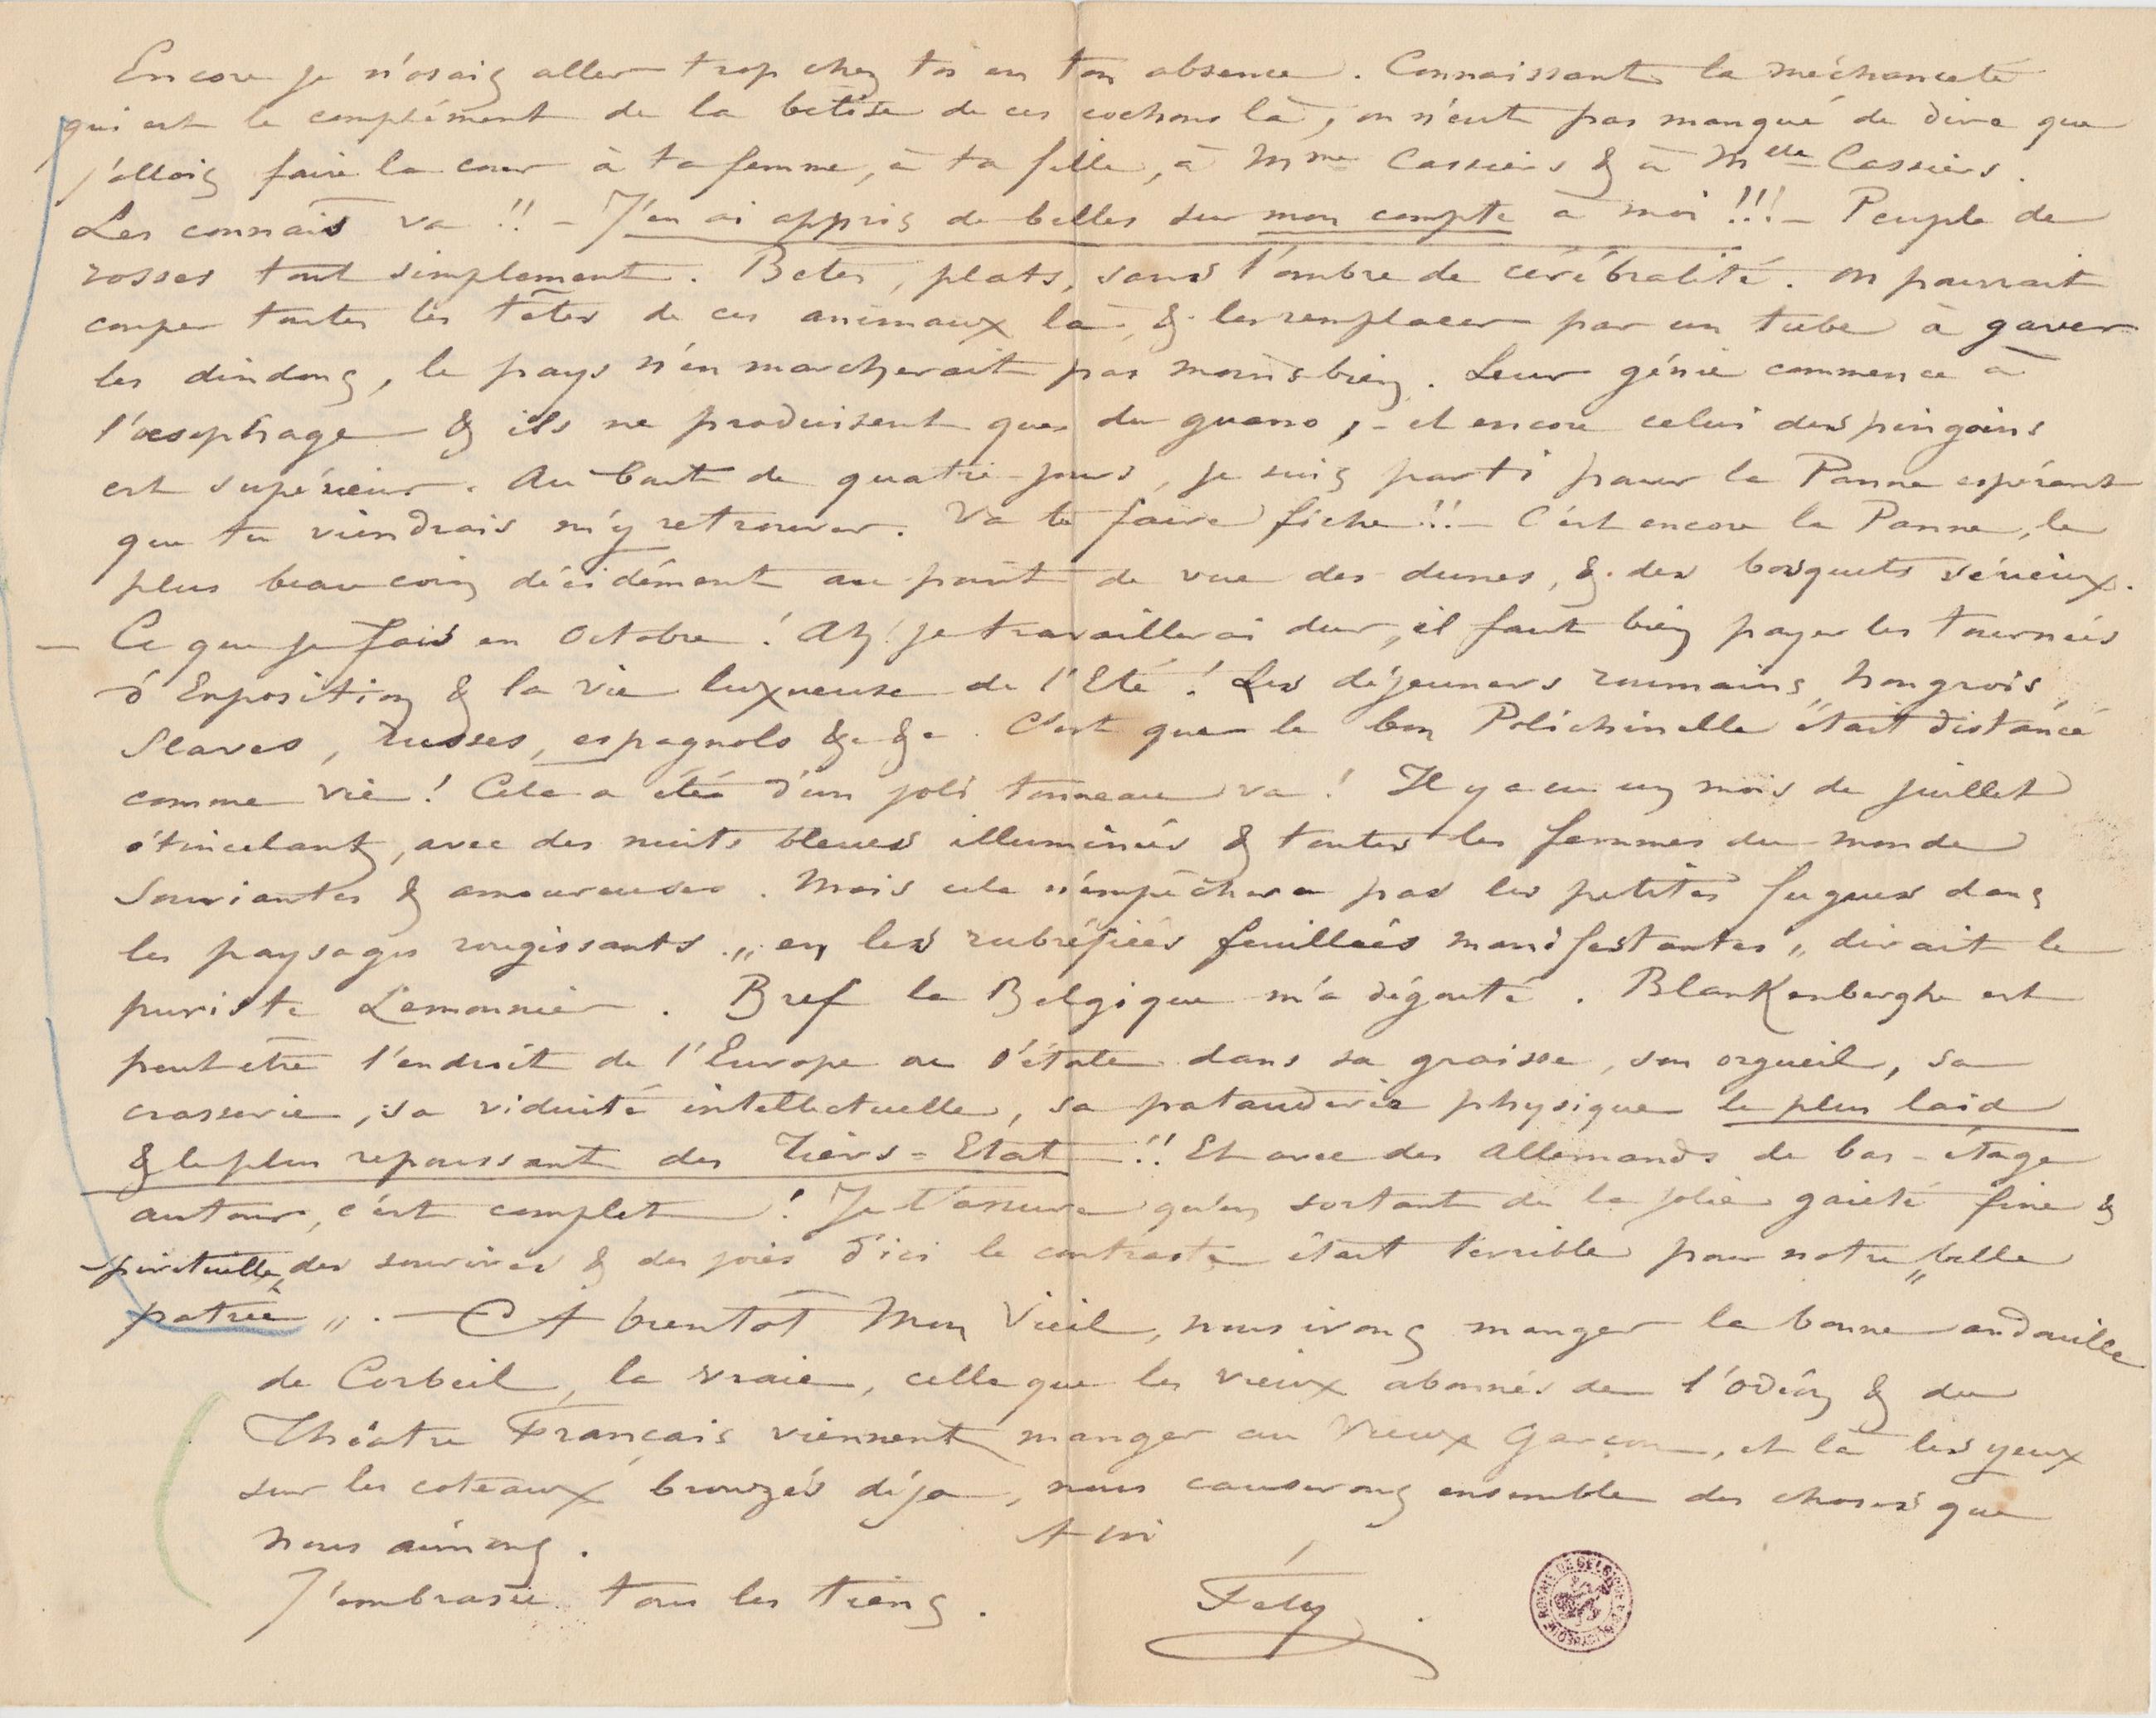 Encore je n'osais aller trop chez toi en ton absence. Connaissant la méchanceté
qui est le complément de la bêtise de ces cochons là, on n'eut pas manqué de dire que
j'allais faire la cour à ta femme, à ta fille, à Mme Cassiers & à Mlle Cassiers.
Les connais va !! – J'en ai appris de belles sur mon compte à moi !!! – Peuple de
rosses tout simplement. Betes, plats, sans l'ombre de cérébralité. On pourrait
couper toutes les têtes de ces animaux là, & les remplacer par un tube à gaver
les dindons, le pays n'en marcherait pas moins bien. Leur génie commence à
l'œsophage & ils ne produisent que du guano, – et encore celui des pingoins
est supérieur. Au bout de quatre jours, je suis parti pour la Panne espérant
que tu viendrais m'y retrouver. Va te faire fiche !! – C'est encore la Panne, le
plus beau coin décidément au point de vue des dunes, & des bosquets sérieux.
– Ce que je fais en Octobre ! Ah ! je travaillerai dur, il faut bien payer les tournées
d'Exposition & la vie luxueuse de l'Eté ! Les déjeuners roumains, hongrois,
Slaves, russes, espagnols &c &c. C'est que le bon Polichinelle était distancé
comme vie ! Cela a été d'un joli tonneau va ! Il y a eu un mois de juillet
étincelant, avec des nuits bleues illuminées & toutes les femmes du monde
souriantes & amoureuses. Mais cela n'empêchera pas les petites fugues dans
les paysages rougissants „ en les rubréfiées feuillées manifestantes „ dirait le
puriste Lemonnier. Bref la Belgique m'a dégouté. BlanKenberghe est
peut etre l'endroit de l'Europe ou s'étale dans sa graisse, son orgueil, sa
crasserie, sa viduité intellectuelle, sa patauderie physique le plus laid
& le plus repoussant des Tiers=Etat !! Et avec des Allemands de bas-étage
autour, c'est complet ! Je t'assure qu'en sortant de la jolie gaieté fine &
spirituelle, des sourires & des joies d'ici le contraste était terrible pour notre „belle
patrie „. – A bientôt Mon Vieil, nous irons manger la bonne andouille
de Corbeil, la vraie, celle que les vieux abonnés de l'Odéon & du
Théâtre Français viennent manger au Vieux Garçon, et là les yeux
sur les coteaux bronzés déja, nous causerons ensemble des choses que
nous aimons.
A toi
J'embrasse tous les tiens.
Fély